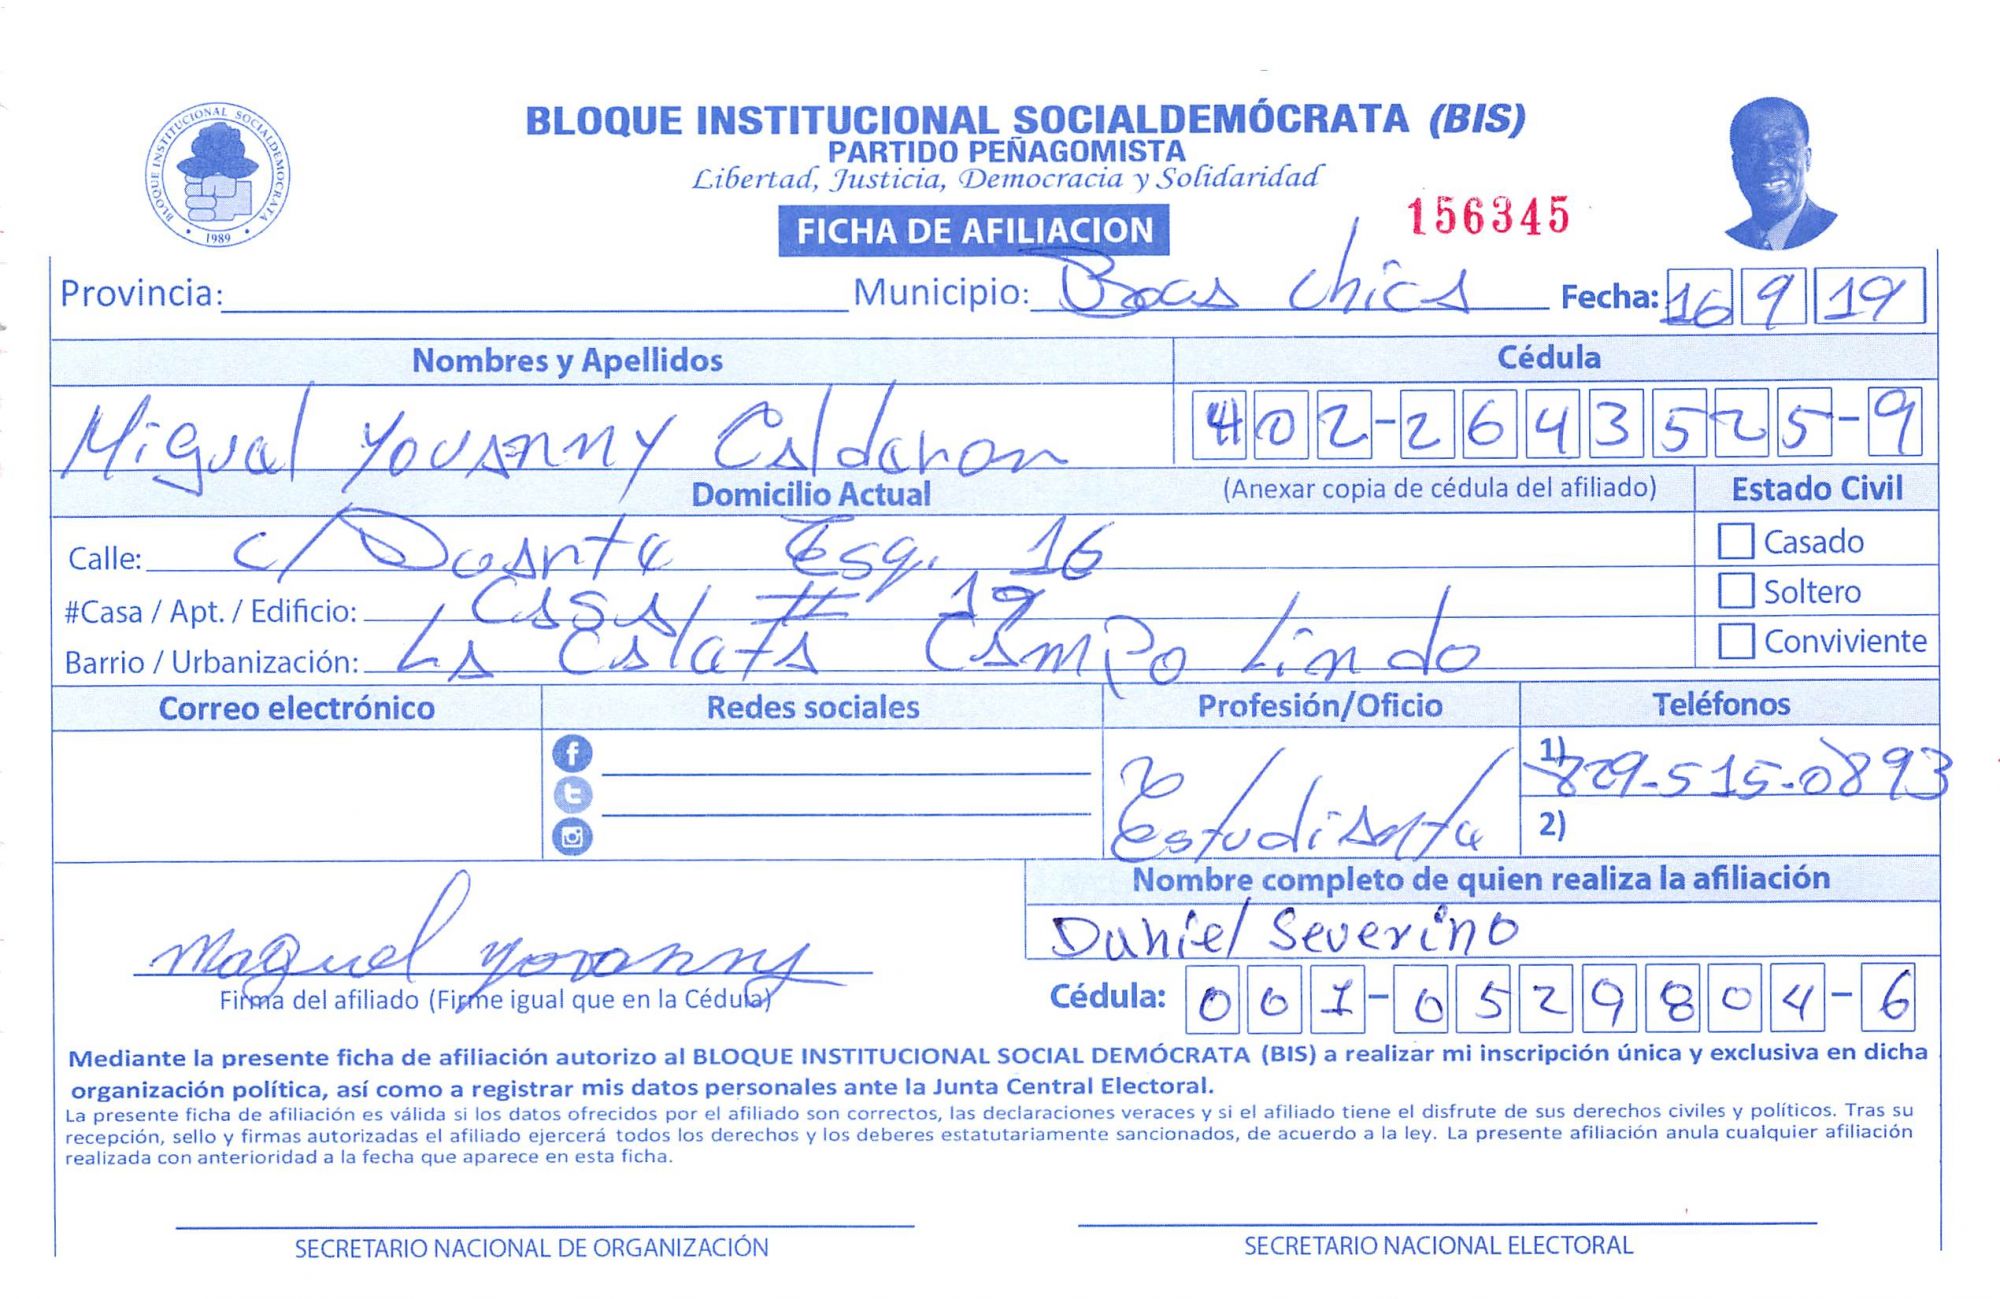 BLOQUE INSTITUCIONAL SOCIALDEMÓCRATA (BIS)
PARTIDO PEÑAGOMISTA
Libertad, Justicia, Democracia y Solidaridad
BLOQUE INSTITUCIONAL SOCIALDEMOCRATA
1989
FICHA DE AFILIACION
156345
Provincia: Municipio: Boca Chica Fecha: 16 9 19
Nombres y Apellidos Cédula
Miguel Yovanny Calderon 402-2643525-9
Domicilio Actual (Anexar copia de cédula del afiliado) Estado Civil
Calle: c/Duarte Esq. 16 Casado
#Casa / Apt. / Edificio: Casa # 19 Soltero
Barrio / Urbanización: La Caleta Campo Lindo Conviviente
Correo electrónico Redes sociales Profesión/Oficio Teléfonos
1) 829-515-0893
Estudiante 2)
Nombre completo de quien realiza la afiliación
Daniel Severino
Miguel yovanny
Firma del afiliado (Firme igual que en la Cédula) Cédula: 001-0529804-6
Mediante la presente ficha de afiliación autorizo al BLOQUE INSTITUCIONAL SOCIAL DEMÓCRATA (BIS) a realizar mi inscripción única y exclusiva en dicha
organización política, así como a registrar mis datos personales ante la Junta Central Electoral.
La presente ficha de afiliación es válida si los datos ofrecidos por el afiliado son correctos, las declaraciones veraces y si el afiliado tiene el disfrute de sus derechos civiles y políticos. Tras su
recepción, sello y firmas autorizadas el afiliado ejercerá todos los derechos y los deberes estatutariamente sancionados, de acuerdo a la ley. La presente afiliación anula cualquier afiliación
realizada con anterioridad a la fecha que aparece en esta ficha.
SECRETARIO NACIONAL DE ORGANIZACIÓN SECRETARIO NACIONAL ELECTORAL